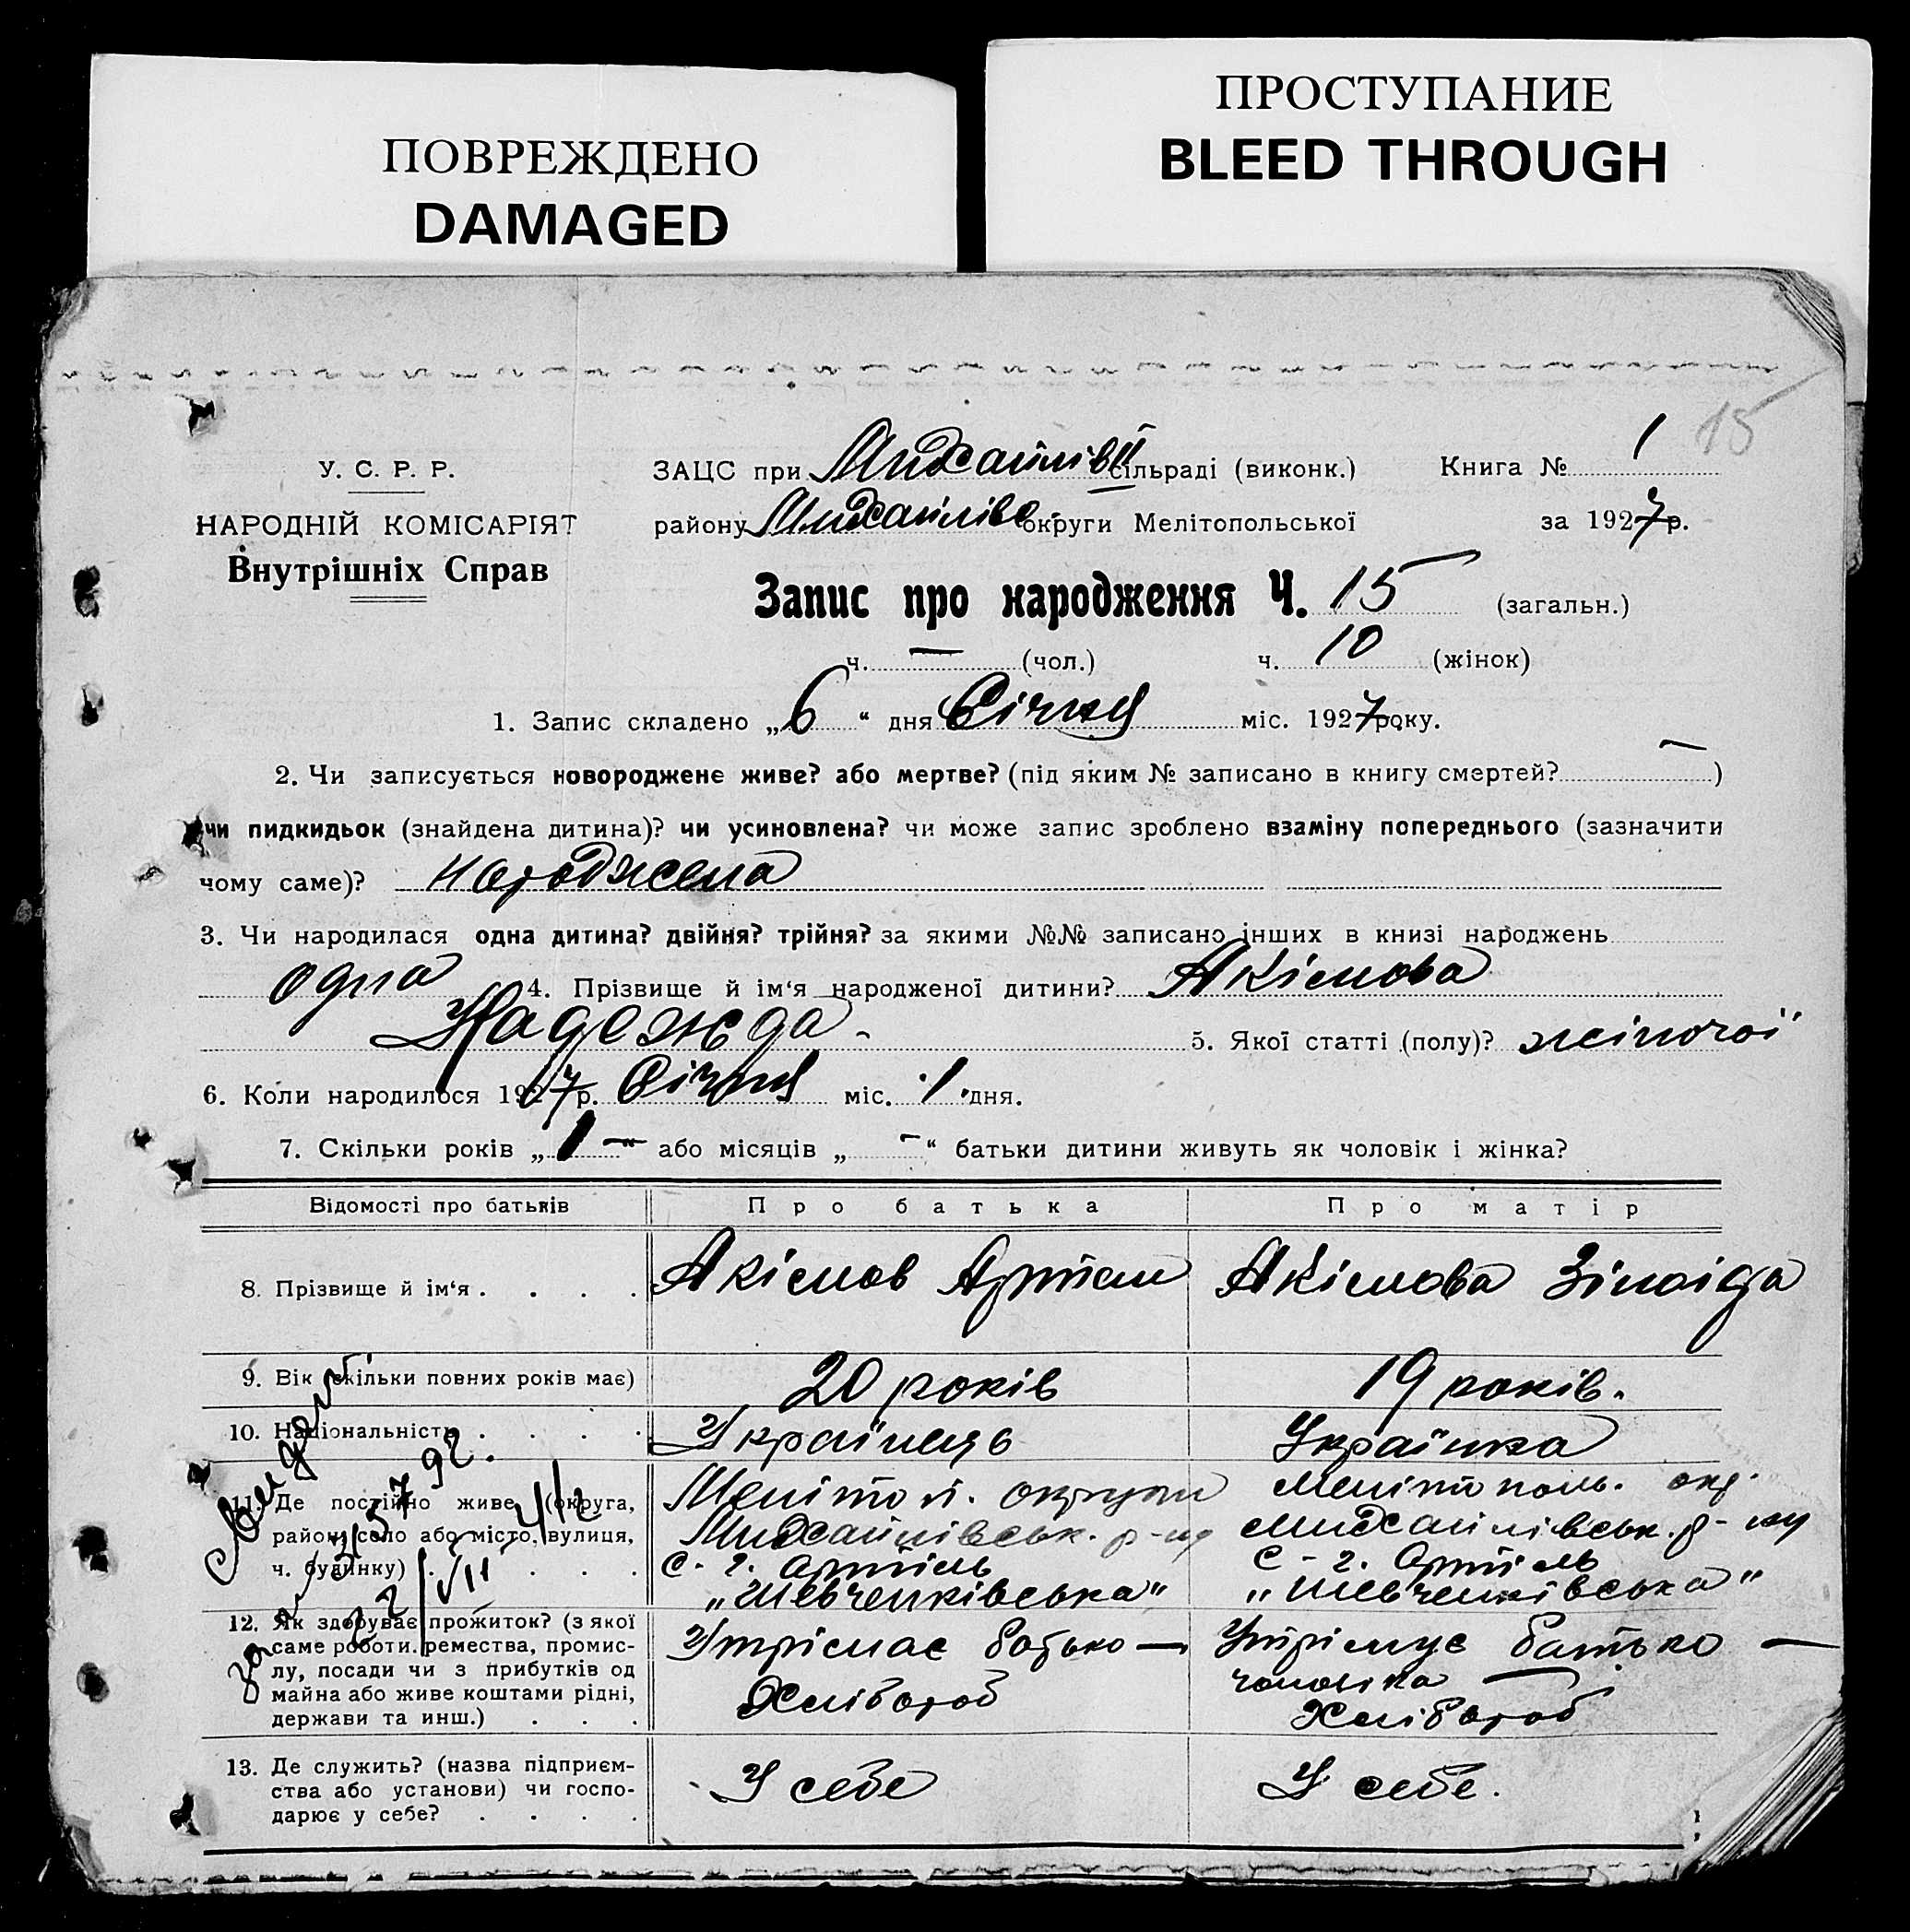 ПОВРЕЖДЕНО
DAMAGED
ПРОСТУПАНИЕ
BLEED THROUGH
15
У. С. Р. Р.
НАРОДНІЙ КОМІСАРІЯТ
Внутрішніх Справ
ЗАЦС при Михайлівській сільраді (виконк.) Книга № 1
району Михайлівс- округи Мелітопольської за 1927 р.
Запис про народження Ч. 15 (загальн.)
ч. — (чол.) ч. 10 (жінок)
1. Запис складено „6“ дня Січня міс. 1927 року.
2. Чи записується новороджене живе? або мертве? (під яким № записано в книгу смертей? — )
чи пидкидьок (знайдена дитина)? чи усиновлена? чи може запис зроблено взаміну попереднього (зазначити
чому саме)? народжена
3. Чи народилася одна дитина? двійня? трійня? за якими №№ записано інших в книзі народжень
одна 4. Прізвище й ім'я народженої дитини? Акімова
Надежда - 5. Якої статті (полу)? жіночої
6. Коли народилося 1927 р. Січня міс. 1 дня.
7. Скільки років „1 —“ або місяців „ - “ батьки дитини живуть як чоловік і жінка?
Відомості про батьків Про батька Про матір
8. Прізвище й ім'я . . . . Акімов Артем Акімова Зінаіда
9. Вік (скільки повних років має) 20 років 19 років.
10. Національність . . . . Українець Українка
11. Де постійно живе (округа,
район, село або місто, вулиця,
ч. будинку) . . . . .
Меліто п. округи
Михайлівськ. р-ну
с.-г. артіль
„Шевченківська“
Мелітополь. окр.
Михайлівськ. р-ну
с-г. Артіль
„Шевченківська“
12. Як здобуває прожиток? (з якої
саме роботи, ремества, промис-
лу, посади чи з прибутків од
майна або живе коштами рідні,
держави та инш.) . . .
Утрімає батько —
Хлібороб
Утрімує батько —
чоловіка —
Хлібороб
13. Де служить? (назва підприєм-
ства або установи) чи госпо-
дарює у себе? . . . .
У себе
У себе.